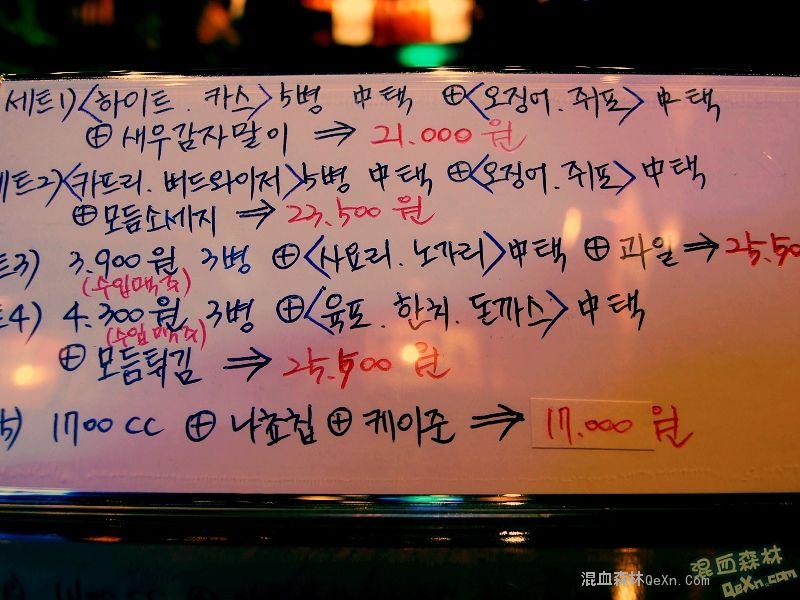 세트1) <하이트. 카스> 5병 中택 ⊕ <오징어. 쥐포> 中택
⊕ 새우감자말이 ⇒ 21.000 원
세트2) <카프리. 버드와이저> 5병 中택 ⊕ <오징어. 쥐포> 中택
⊕ 모듬소세지 ⇒ 23,500 원
트3) 3.900원 3병 ⊕ <사요리. 노가리> 中택 ⊕ 과일 ⇒ 25,50
(수입맥주)
트4) 4.300원 3병 ⊕ <육포. 한치. 돈까스> 中택
(수입맥주)
⊕ 모듬튀김 ⇒ 25,500 원
5) 1700 cc ⊕ 나쵸칩 ⊕ 케이준 ⇒ 17.000 원
混血森林QeXn.Com
混血森林
QeXn.com